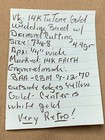 Vtg. 14K Two Tone Gold
Wedding Band w/
Diamond Cutting
Size: 7 4.4gr
Approx 1/4" wide
Marked: 14K
Engraved inside:
9-12-70
outside edges Yellow
Gold - Center is
white gold
Very Retro!